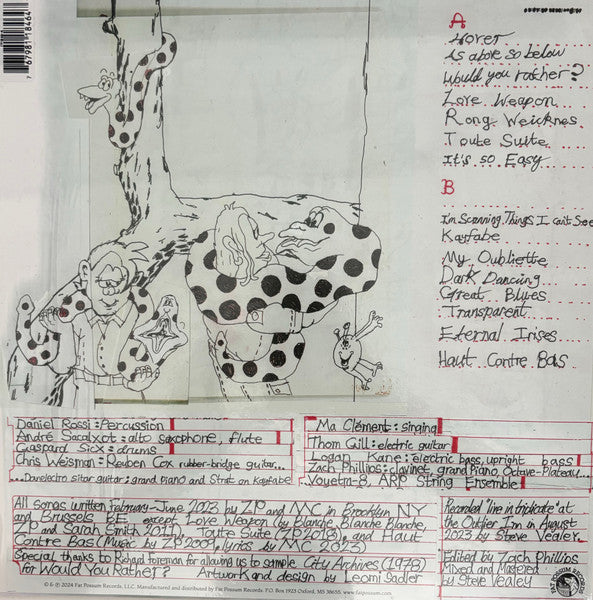 7 67981 18464
A
Hover
As above so below
Would you rather?
Love Weapon
Rong Weicknes
Toute Suite
It's so Easy
B
I'm Scanning Things I can't See
Kayfabe
My Oubliette
Dark Dancing
Great Blues
Transparent
Eternal Irises
Haut Contre Bas
Daniel Rossi: Percussion
André Sacalxot: alto saxophone, flute
Gaspard Sicx: drums
Chris Weisman: Reuben Cox rubber-bridge guitar...
...Danelectro sitar guitar; grand piano and Strat on Kayfabe
Ma Clément: singing
Thom Gill: electric guitar
Logan Kane: electric bass, upright bass
Zach Phillips: clavinet, grand piano, Octave-Plateau...
Voyetra-8, ARP String Ensemble
All songs written February-June 2023 by ZP and MC in Brooklyn NY
and Brussels BE except Love Weapon (by Blanche Blanche Blanche,
ZP and Sarah Smith 2011), Toute Suite (ZP 2018), and Haut
Contre Bas (Music by ZP 2009, lyrics by MC 2023)
Special thanks to Richard Foreman for allowing us to sample City Archives (1978)
for Would You Rather? Artwork and design by Leomi Sadler
Recorded "live in triplicate" at
the Outlier Inn in August
2023 by Steve Vealey.
Edited by Zach Phillips
Mixed and Mastered
by Steve Vealey
© & ℗ 2024 Fat Possum Records, LLC. Manufactured and distributed by Fat Possum Records. P.O. Box 1923 Oxford, MS 38655. www.fatpossum.com
FAT POSSUM RECORDS